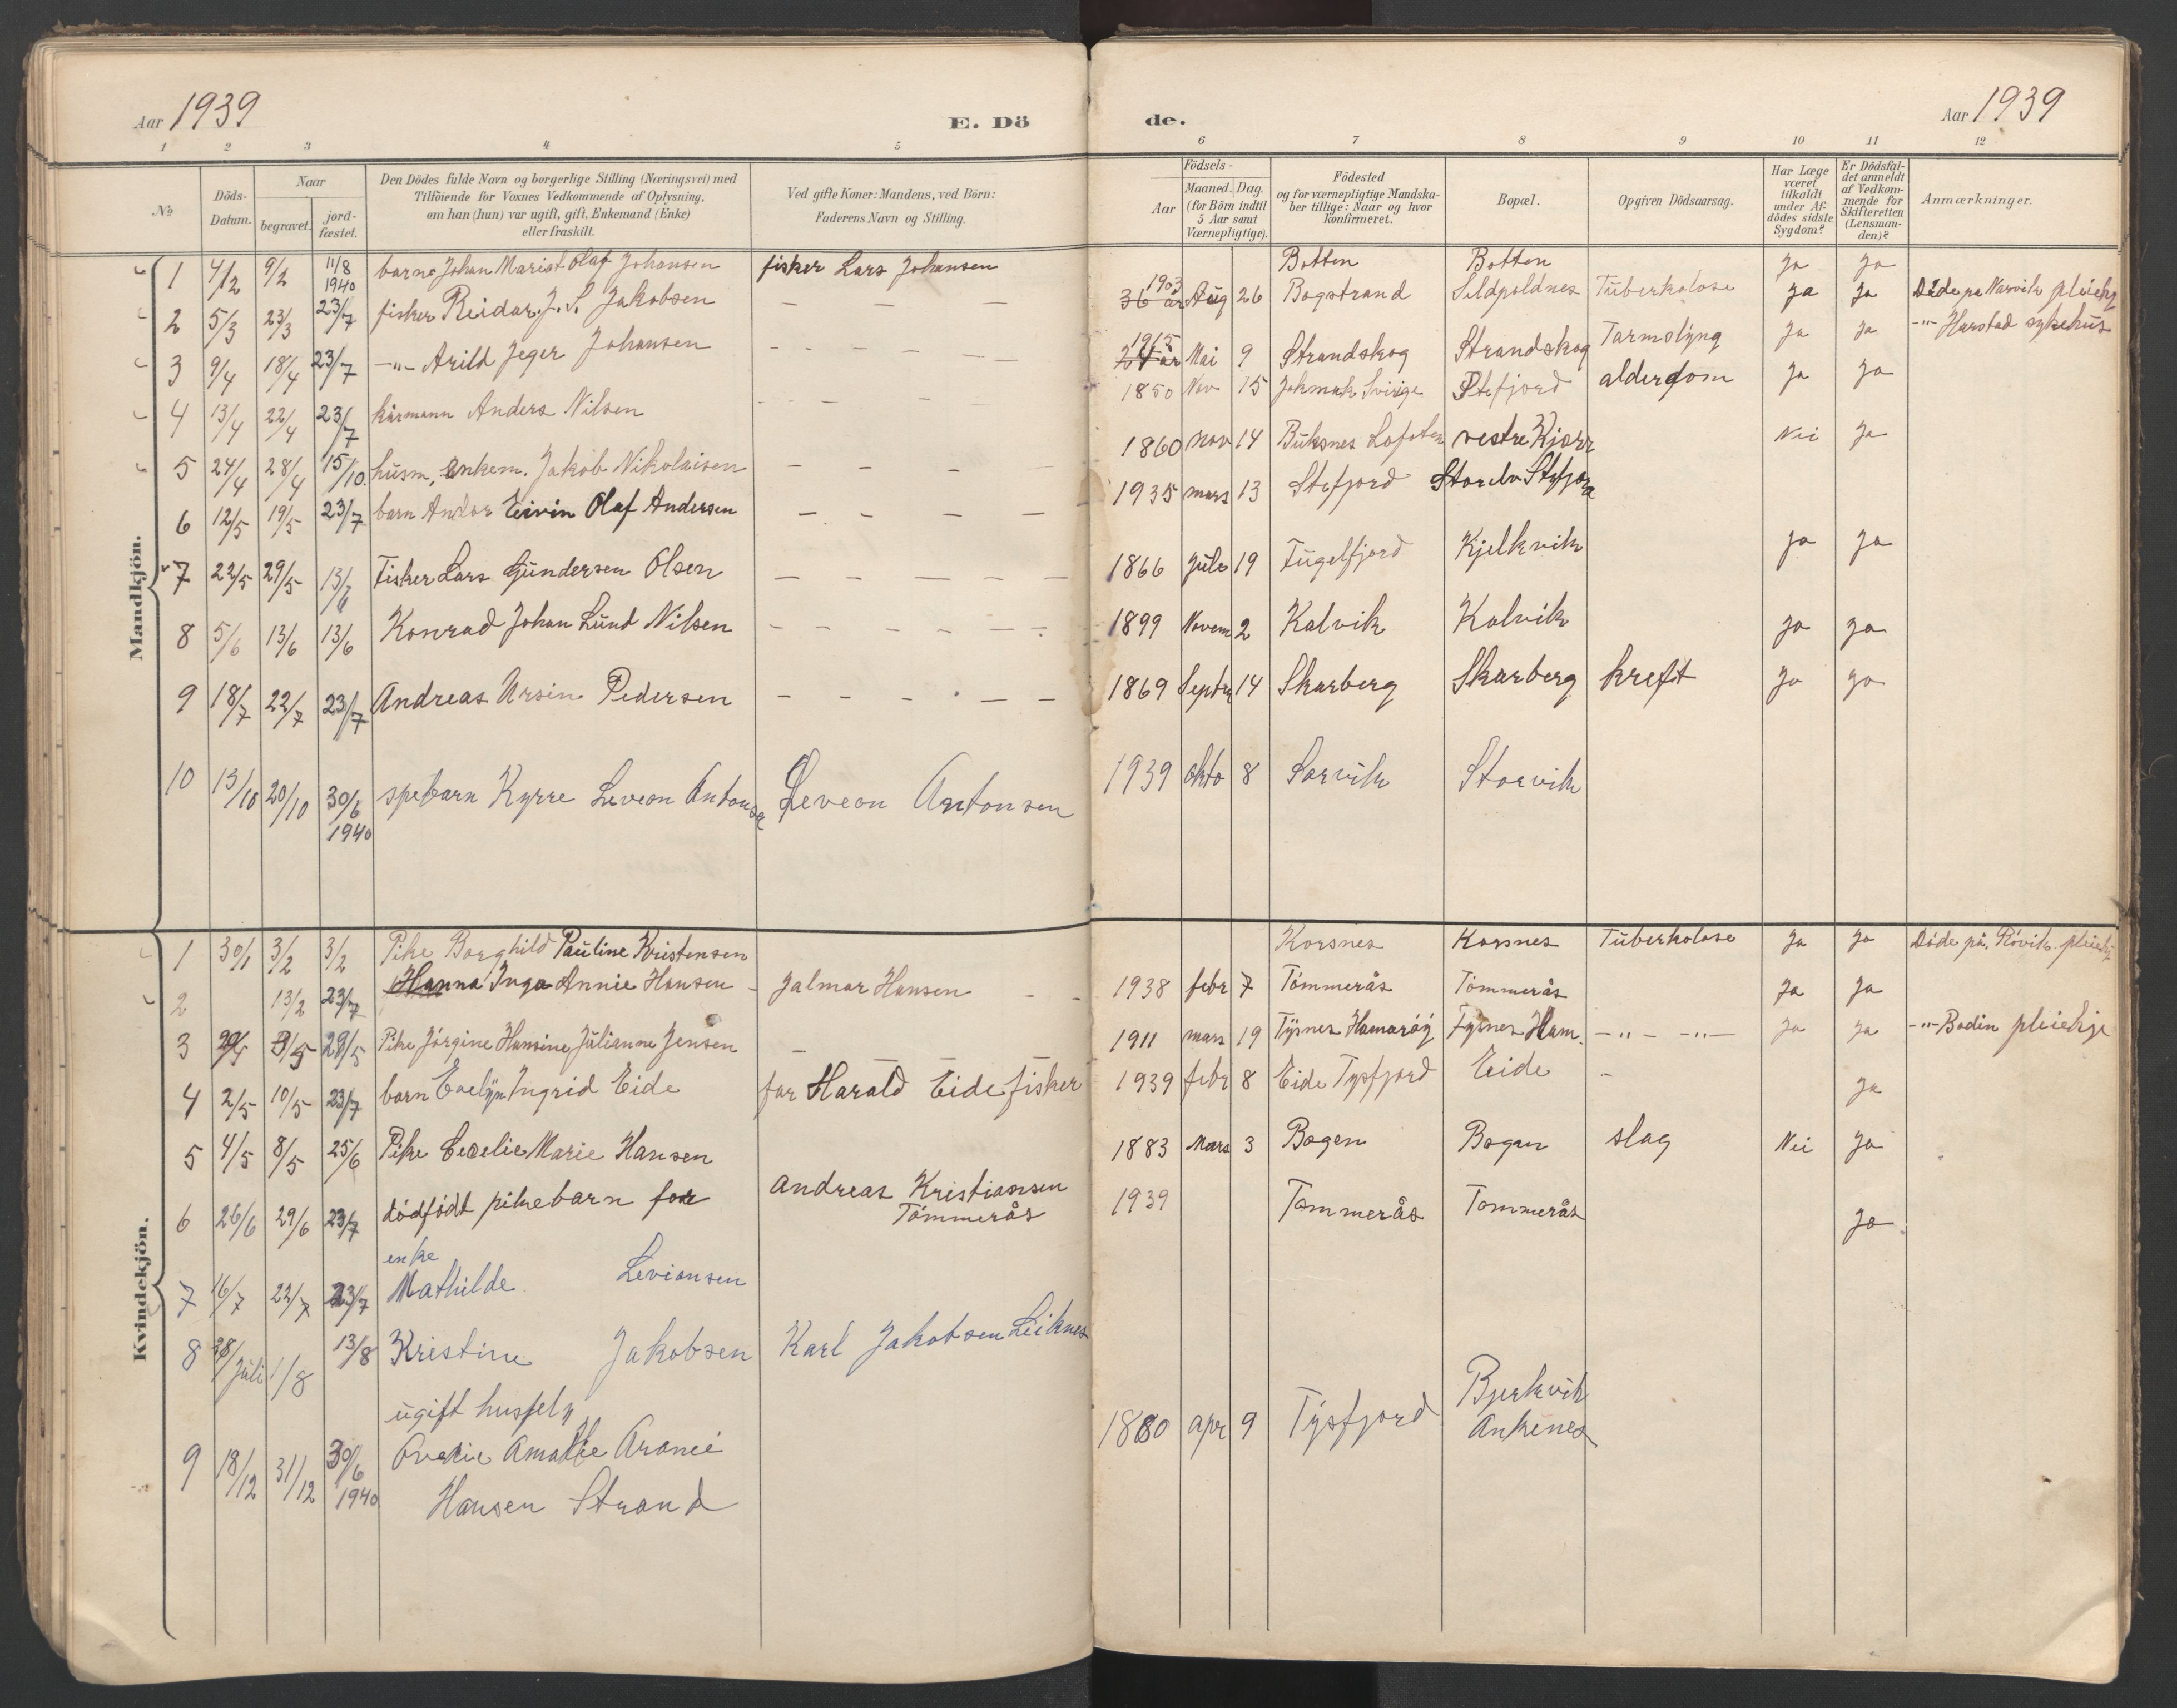 Aar 1939
E. Dö
de.
Aar 1939
1 2 3 4 5 6 7 8 9 10 11 12
No
Döds-
Datum.
Naar
begravet.
jord-
fæstet.
Den Dödes fulde Navn og borgerlige Stilling (Næringsvei) med
Tilföiende for Voxnes Vedkommende af Oplysning,
om han (hun) var ugift, gift, Enkemand (Enke)
eller fraskilt.
Ved gifte Koner: Mandens, ved Börn:
Faderens Navn og Stilling.
Födsels-
Aar
Maaned. Dag.
(for Börn indtil
5 Aar samt
Værnepligtige).
Födested
og for værnepligtige Mandska-
ber tillige: Naar og hvor
konfirmeret.
Bopæl.
Opgiven Dödsaarsag.
Har Læge
været
tilkaldt
under Af-
dödes sidste
Sygdom?
Er Dödsfal-
det anmeldt
af Vedkom-
mende for
Skifteretten
(Lensman-
den)?
Anmærkninger.
Mandkjön.
1 4/2 9/2 11/8 1940 barn Johan Marist Olaf Johansen fisker Lars Johansen Botten Botten ja ja
2 5/3 23/3 23/7 fisker Reidar J. S. Jakobsen — — — 1903 36 år Aug 26 Bogstrand Tuberkolose ja ja Döde på Narvik pleiehj
3 9/4 18/4 23/7 -"- Arild Jeger Johansen - - - - - 1915 24 år Mai 9 Strandskog Strandskog Tarmslyng ja ja -"- Harstad sykehus
4 13/4 22/4 23/7 kårmann Anders Nilsen - - - - 1850 Nov 15 Jokmok Sverige Stefjord alderdom ja ja
5 24/4 28/4 15/10. husm, enkem. Jakob Nikolaisen — — — — 1860 nov 14 Buksnes Lofoten vestre Kjorr Nei ja
6 12/5 19/5 23/7 barn Andor Eivin Olaf Andersen — — — — 1935 mars 13 Stefjord Storelv Stefjord
7 22/5 29/5 13/6 Fisker Lars Gundersen Olsen — — — — — 1866 Jule 19 Fugelfjord Kjelkvik ja ja
8 5/6 13/6 13/6 Konrad Johan Lund Nilsen - - - - - - 1899 Novem 2 Kalvik Kalvik ja ja
9 18/7 22/7 23/7 Andreas Ursin Pedersen — — — — — 1869 Septbr 14 Skarberg Skarberg kreft ja ja
10 13/10 20/10 30/6 1940 spebarn Kyrre Leveon Antonsen Leveon Antonsen 1939 okto 8 Sorvik Storvik
Kvindekjön.
1 30/1 3/2 3/2 Pike Borghild Pauline Kristensen Korsnes Korsnes Tuberkolose ja ja Döde på Rövik pleiehj
2 13/2 23/7 Hanna Inga Annie Hansen - Jalmar Hansen - - 1938 febr 7 Tömmerås Tömmerås ja ja
3 29/5 29/5 Pike Jörgine Hansine Julianne Jensen — 1911 mars 19 Tysnes Hamaröy Tysnes Ham. -"- -"- ja ja -"- Bodin pleiehje
4 2/5 10/5 23/7 barn Evelyn Ingrid Eide far Harald Eide fisker 1939 febr 8 Eide Tysfjord Eide - ja
5 4/5 8/5 25/6 Pike Cecelie Marie Hansen 1883 Mars 3 Bogen Bogen slag Nei ja
6 26/6 29/6 23/7 dödfödt pikebarn for Andreas Kristiansen
Tömmerås 1939 Tommerås Tommerås ja
enke
7 16/7 22/7 23/7 Mathilde Leviansen
8 28/Juli 1/8 13/8 Kristine Jakobsen Karl Jakobsen Leiknes
ugift husfely
9 18/12 31/12 30/6 1940 Ovedie Amalie Hansen Strand 1880 apr 9 Tysfjord Bjerkvik
Ankenes